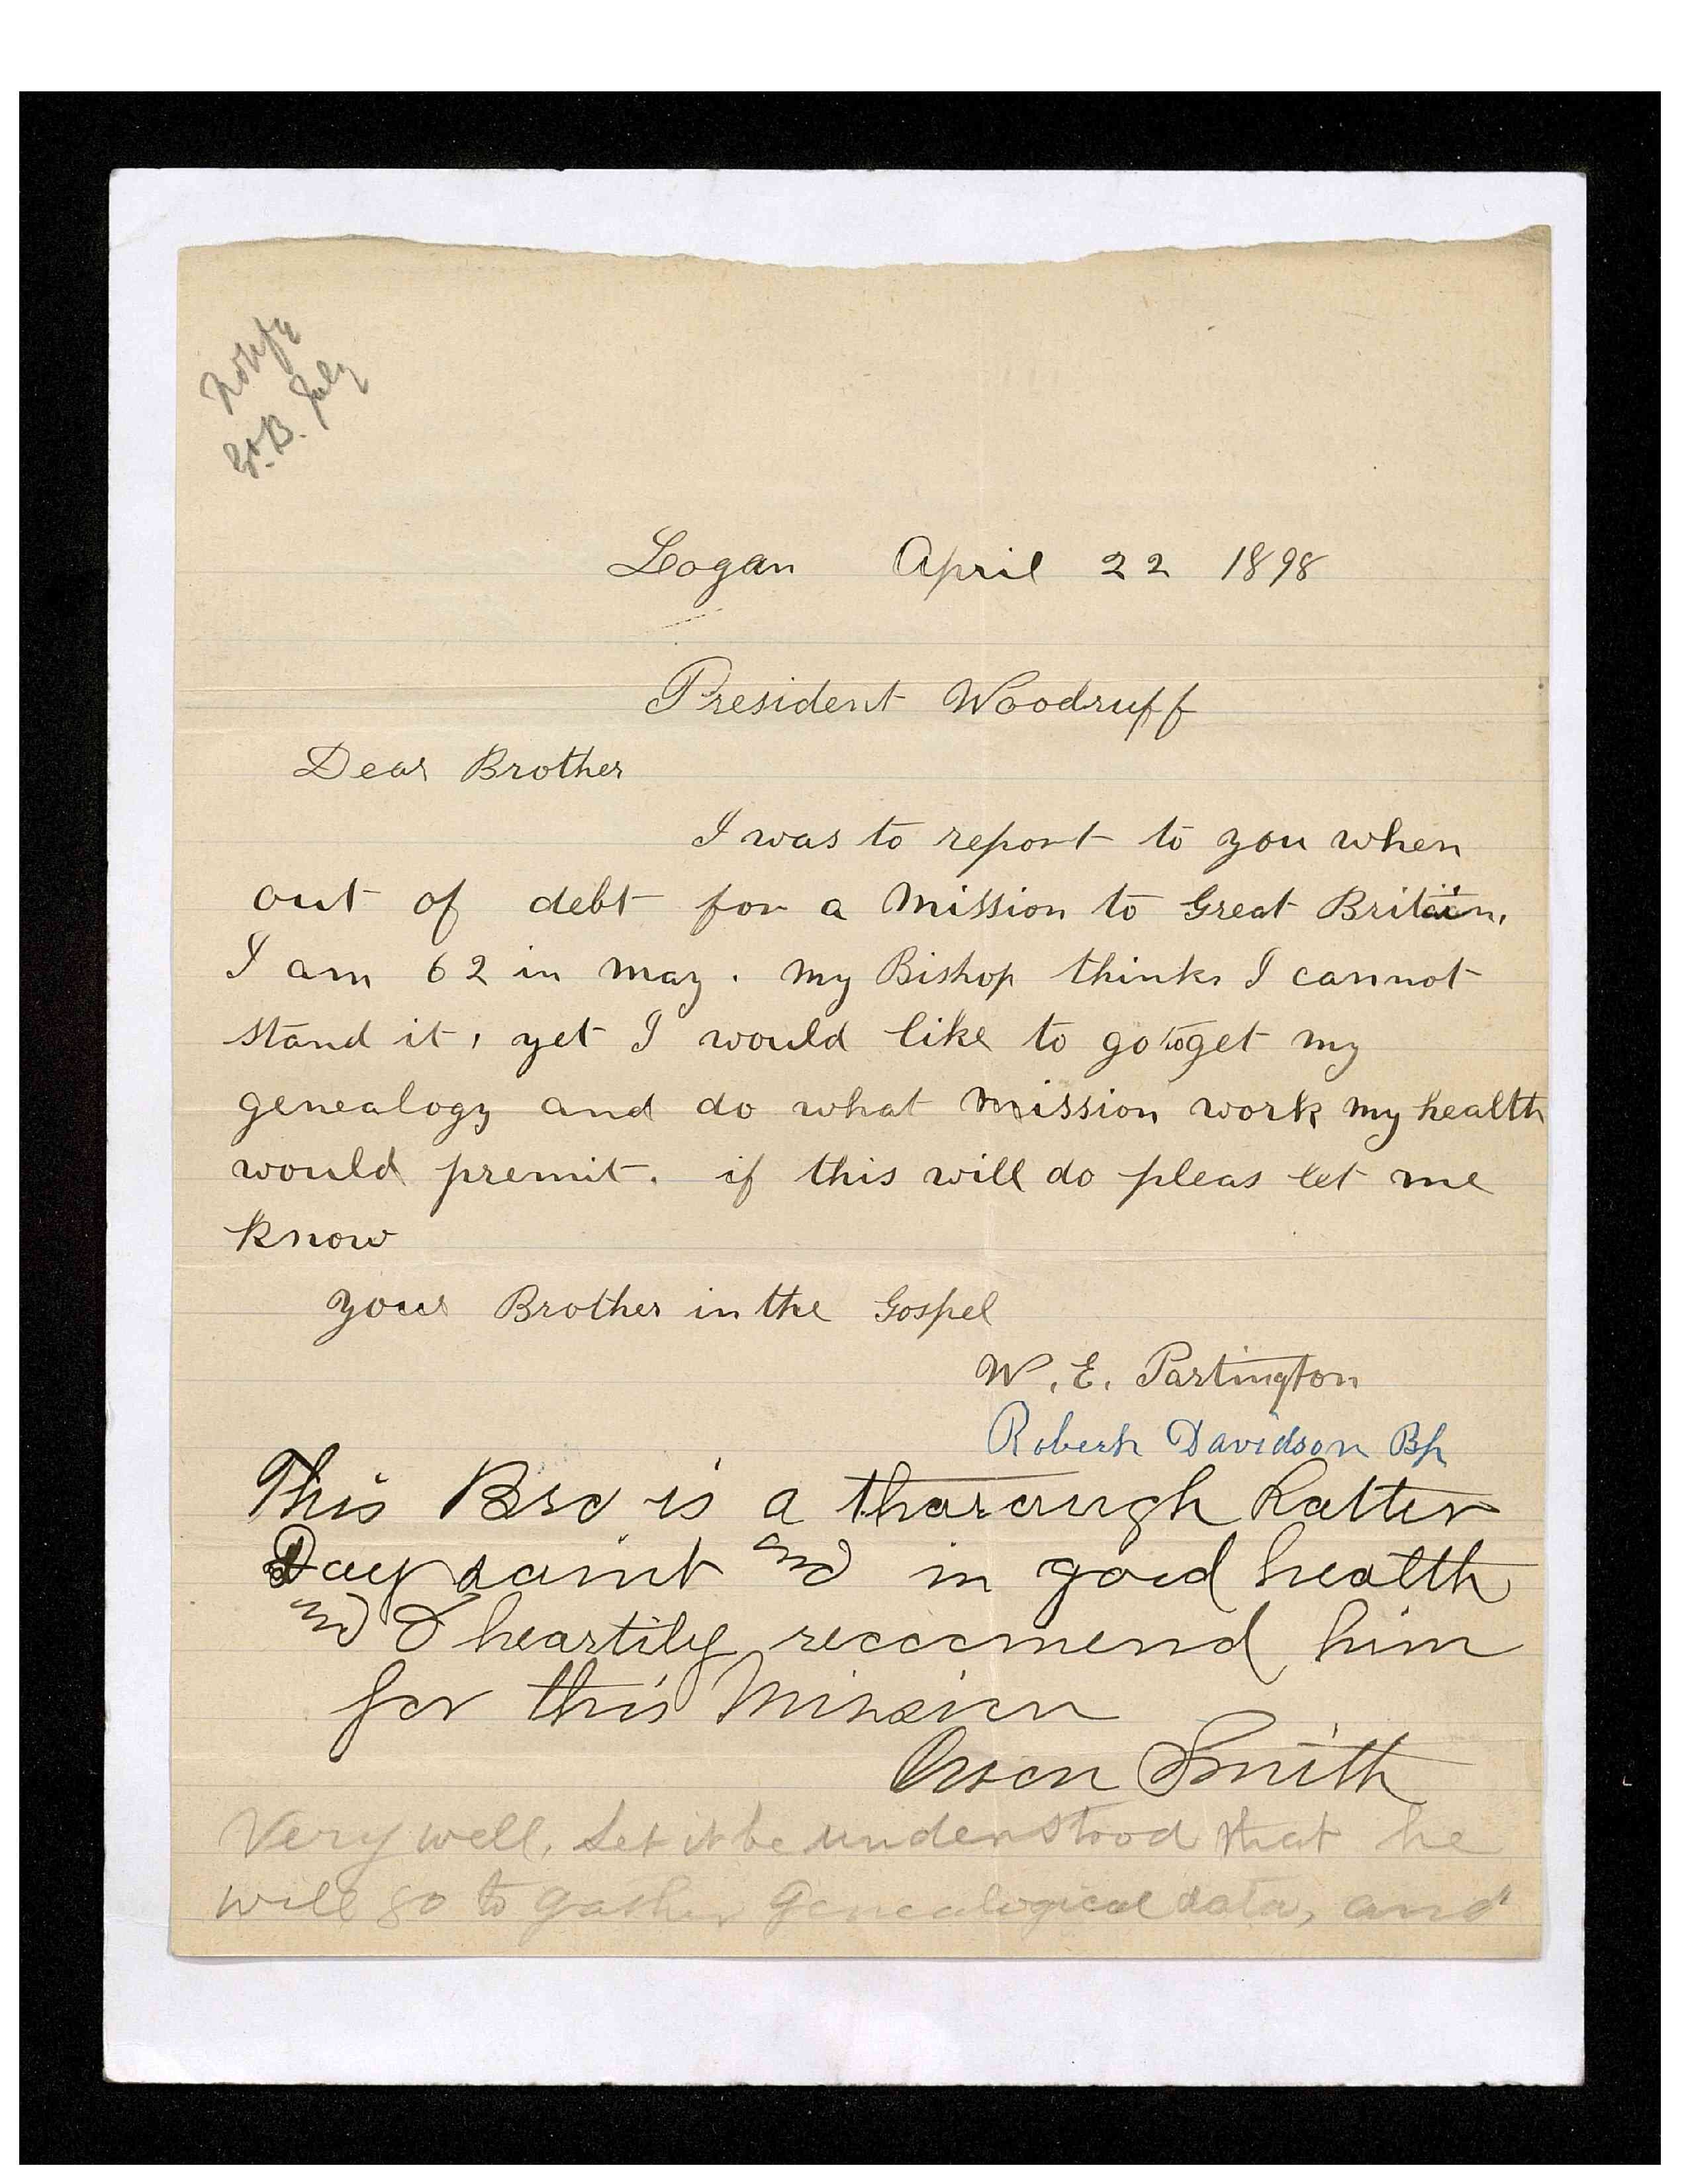 Notify
Gt. B. July
Logan April 22 1898
President Woodruff
Dear Brother
I was to report to you when
out of debt for a mission to Great Britain.
I am 62 in may. my Bishop thinks I cannot
stand it, yet I would like to go to get my
genealogy and do what mission work my health
would premit. if this will do pleas let me
know
your Brother in the Gospel
W. E. Partington
Robert Davidson Bp
This Bro is a thorough Latter
Day saint and in good health
and I heartily reccomend him
for this Mission
Orson Smith
Very well. Let it be understood that he
will go to gather Genealogical data, and